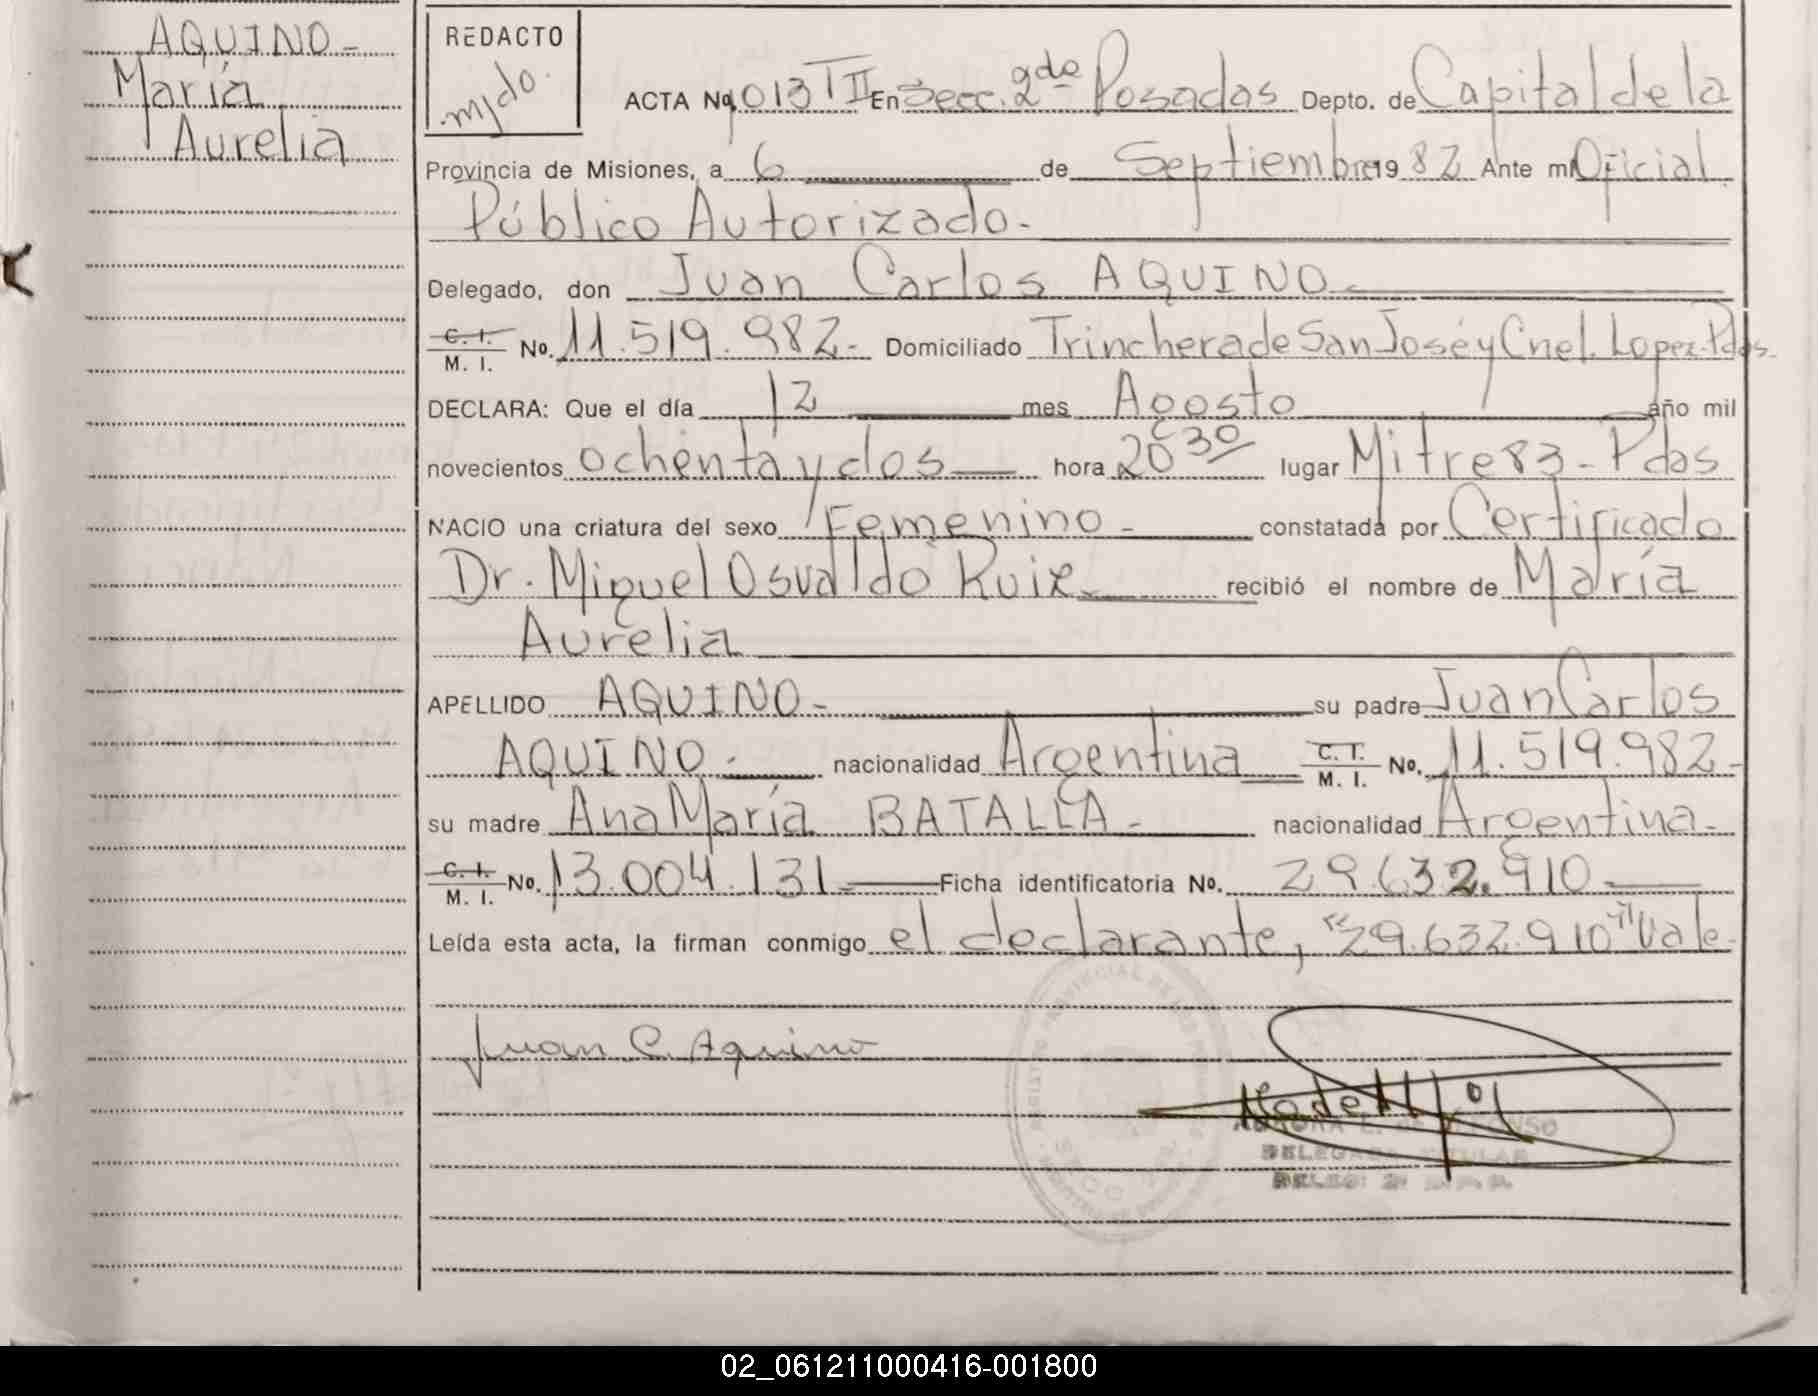 AQUINO-
María
Aurelia
REDACTO
mjdo.
ACTA No 1013 T II En Secc. 2da Posadas Depto. de Capital de la
Provincia de Misiones, a 6 de Septiembre 1982 Ante mi Oficial
Público Autorizado.-
Delegado, don Juan Carlos AQUINO.-
C. I. / M. I. No. 11.519.982.- Domiciliado Trinchera de San José y Cnel. Lopez-Pdas.
DECLARA: Que el día 12 mes Agosto año mil
novecientos ochenta y dos hora 20 30 lugar Mitre 83 - Pdas
NACIO una criatura del sexo Femenino - constatada por Certificado
Dr. Miguel Osvaldo Ruiz. recibió el nombre de María
Aurelia
APELLIDO AQUINO- su padre Juan Carlos
AQUINO.- nacionalidad Argentina C. I. / M. I. No. 11.519.982-
su madre Ana María BATALLA- nacionalidad Argentina-
C. I. / M. I. No. 13.004.131 Ficha identificatoria No. 29.632.910-
Leída esta acta, la firman conmigo el declarante, "29.632.910" Vale-
Juan C. Aquino
DELEGADA TITULAR
02_061211000416-001800